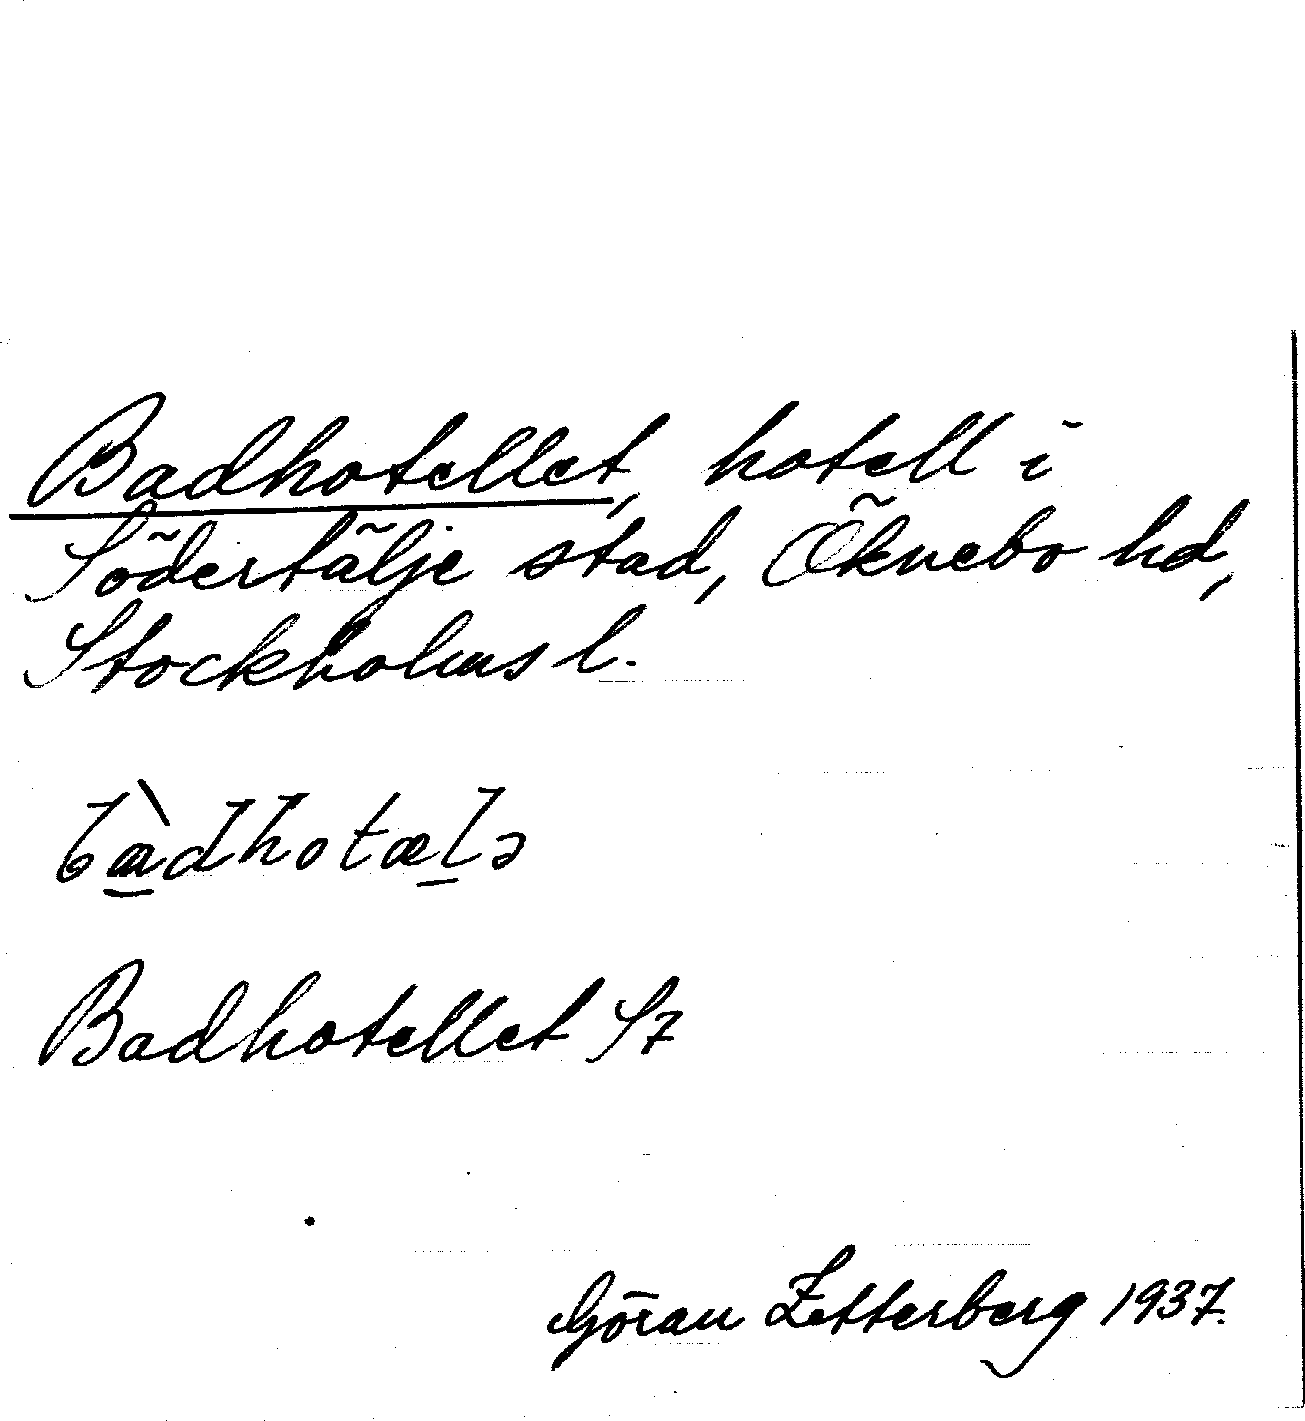 Badhotellet, hotell i
Södertälje stad, Öknebo hd,
Stockholms l.
bàdhotælə
Badhotellet S7
Göran Zetterberg 1937.